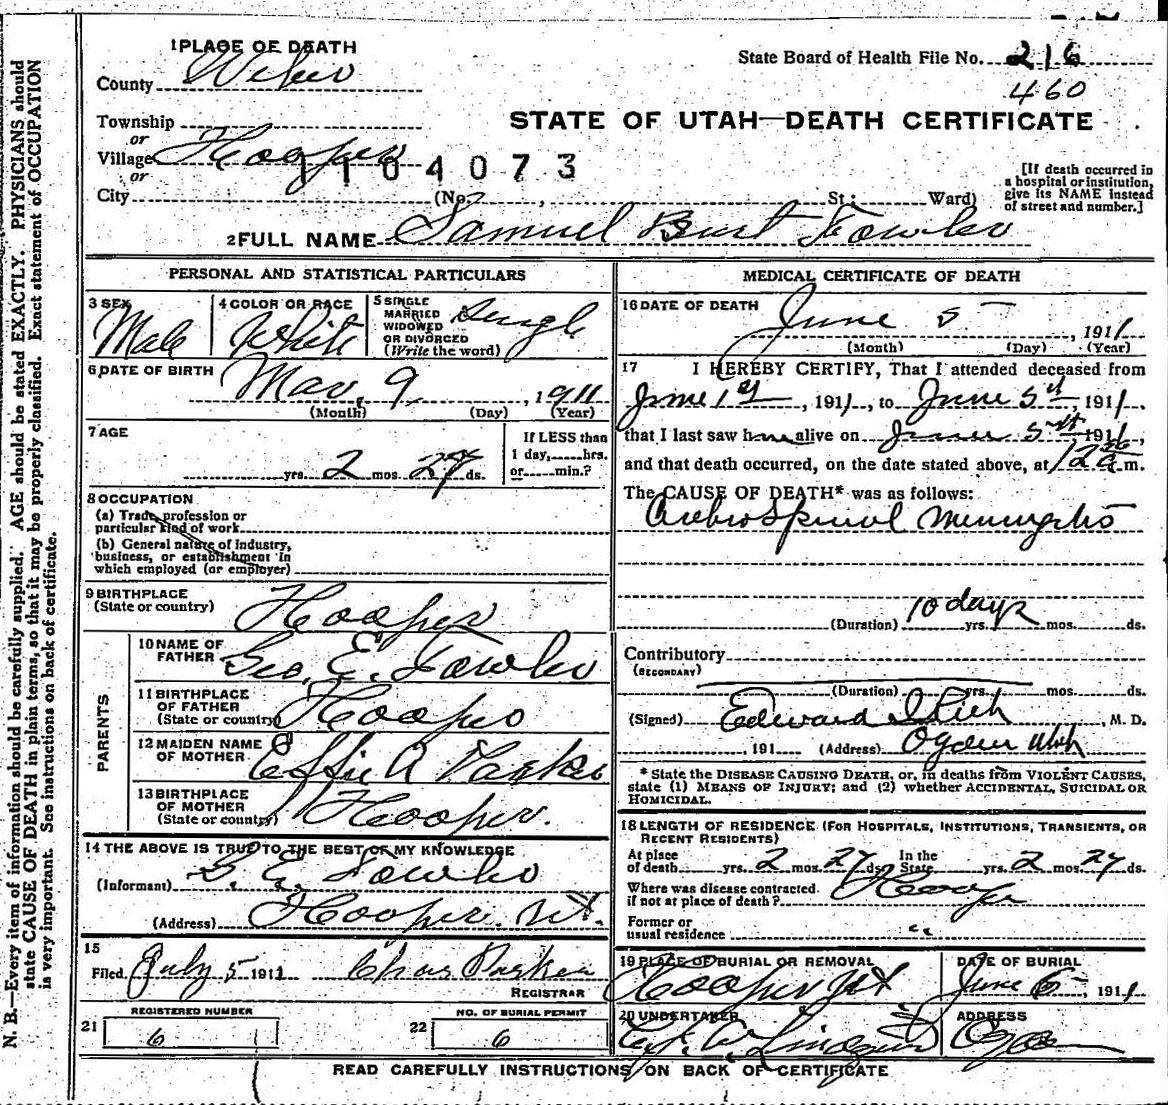 1 PLACE OF DEATH
County Weber
State Board of Health File No. 216
460
STATE OF UTAH—DEATH CERTIFICATE
Township
or
Village Hooper
or
1104073
City (No. , St.; Ward)
[If death occurred in a hospital or institution, give its NAME instead of street and number.]
2 FULL NAME Samuel Burt Fowler
PERSONAL AND STATISTICAL PARTICULARS
3 SEX Male
4 COLOR OR RACE White
5 SINGLE MARRIED WIDOWED OR DIVORCED (Write the word) Single
6 DATE OF BIRTH Mar, 9, 1911
(Month) (Day) (Year)
7 AGE
yrs. 2 mos. 27 ds.
If LESS than 1 day, hrs. or min.?
8 OCCUPATION
(a) Trade, profession or particular kind of work
(b) General nature of industry, business, or establishment in which employed (or employer)
9 BIRTHPLACE (State or country) Hooper
PARENTS
10 NAME OF FATHER Geo. E. Fowler
11 BIRTHPLACE OF FATHER (State or country) Hooper
12 MAIDEN NAME OF MOTHER Effie A Parker
13 BIRTHPLACE OF MOTHER (State or country) Hooper.
14 THE ABOVE IS TRUE TO THE BEST OF MY KNOWLEDGE
(Informant) G. E. Fowler
(Address) Hooper. Ut.
15
Filed July 5 1911 Chas Parker
REGISTRAR
21 REGISTERED NUMBER 6
22 NO. OF BURIAL PERMIT 6
MEDICAL CERTIFICATE OF DEATH
16 DATE OF DEATH June 5, 1911
(Month) (Day) (Year)
17 I HEREBY CERTIFY, That I attended deceased from
June 1st, 1911, to June 5th, 1911.
that I last saw him alive on June 5th 1911,
and that death occurred, on the date stated above, at 12 a.m.
The CAUSE OF DEATH* was as follows:
Cerebro Spinal Meningitis
(Duration) 10 days yrs. mos. ds.
Contributory
(SECONDARY)
(Duration) yrs. mos. ds.
(Signed) Edward I Rich, M. D.
191 (Address) Ogden Utah
* State the DISEASE CAUSING DEATH, or, in deaths from VIOLENT CAUSES, state (1) MEANS OF INJURY; and (2) whether ACCIDENTAL, SUICIDAL OR HOMICIDAL.
18 LENGTH OF RESIDENCE (FOR HOSPITALS, INSTITUTIONS, TRANSIENTS, OR RECENT RESIDENTS)
At place of death yrs. 2 mos. 27 ds. In the State yrs. 2 mos. 27 ds.
Where was disease contracted. if not at place of death? Hooper
Former or usual residence "
19 PLACE OF BURIAL OR REMOVAL Hooper Ut
DATE OF BURIAL June 6, 1911
20 UNDERTAKER
ADDRESS Ogden
READ CAREFULLY INSTRUCTIONS ON BACK OF CERTIFICATE
N. B.—Every item of information should be carefully supplied. AGE should be stated EXACTLY. PHYSICIANS should
state CAUSE OF DEATH in plain terms, so that it may be properly classified. Exact statement of OCCUPATION
is very important. See instructions on back of certificate.